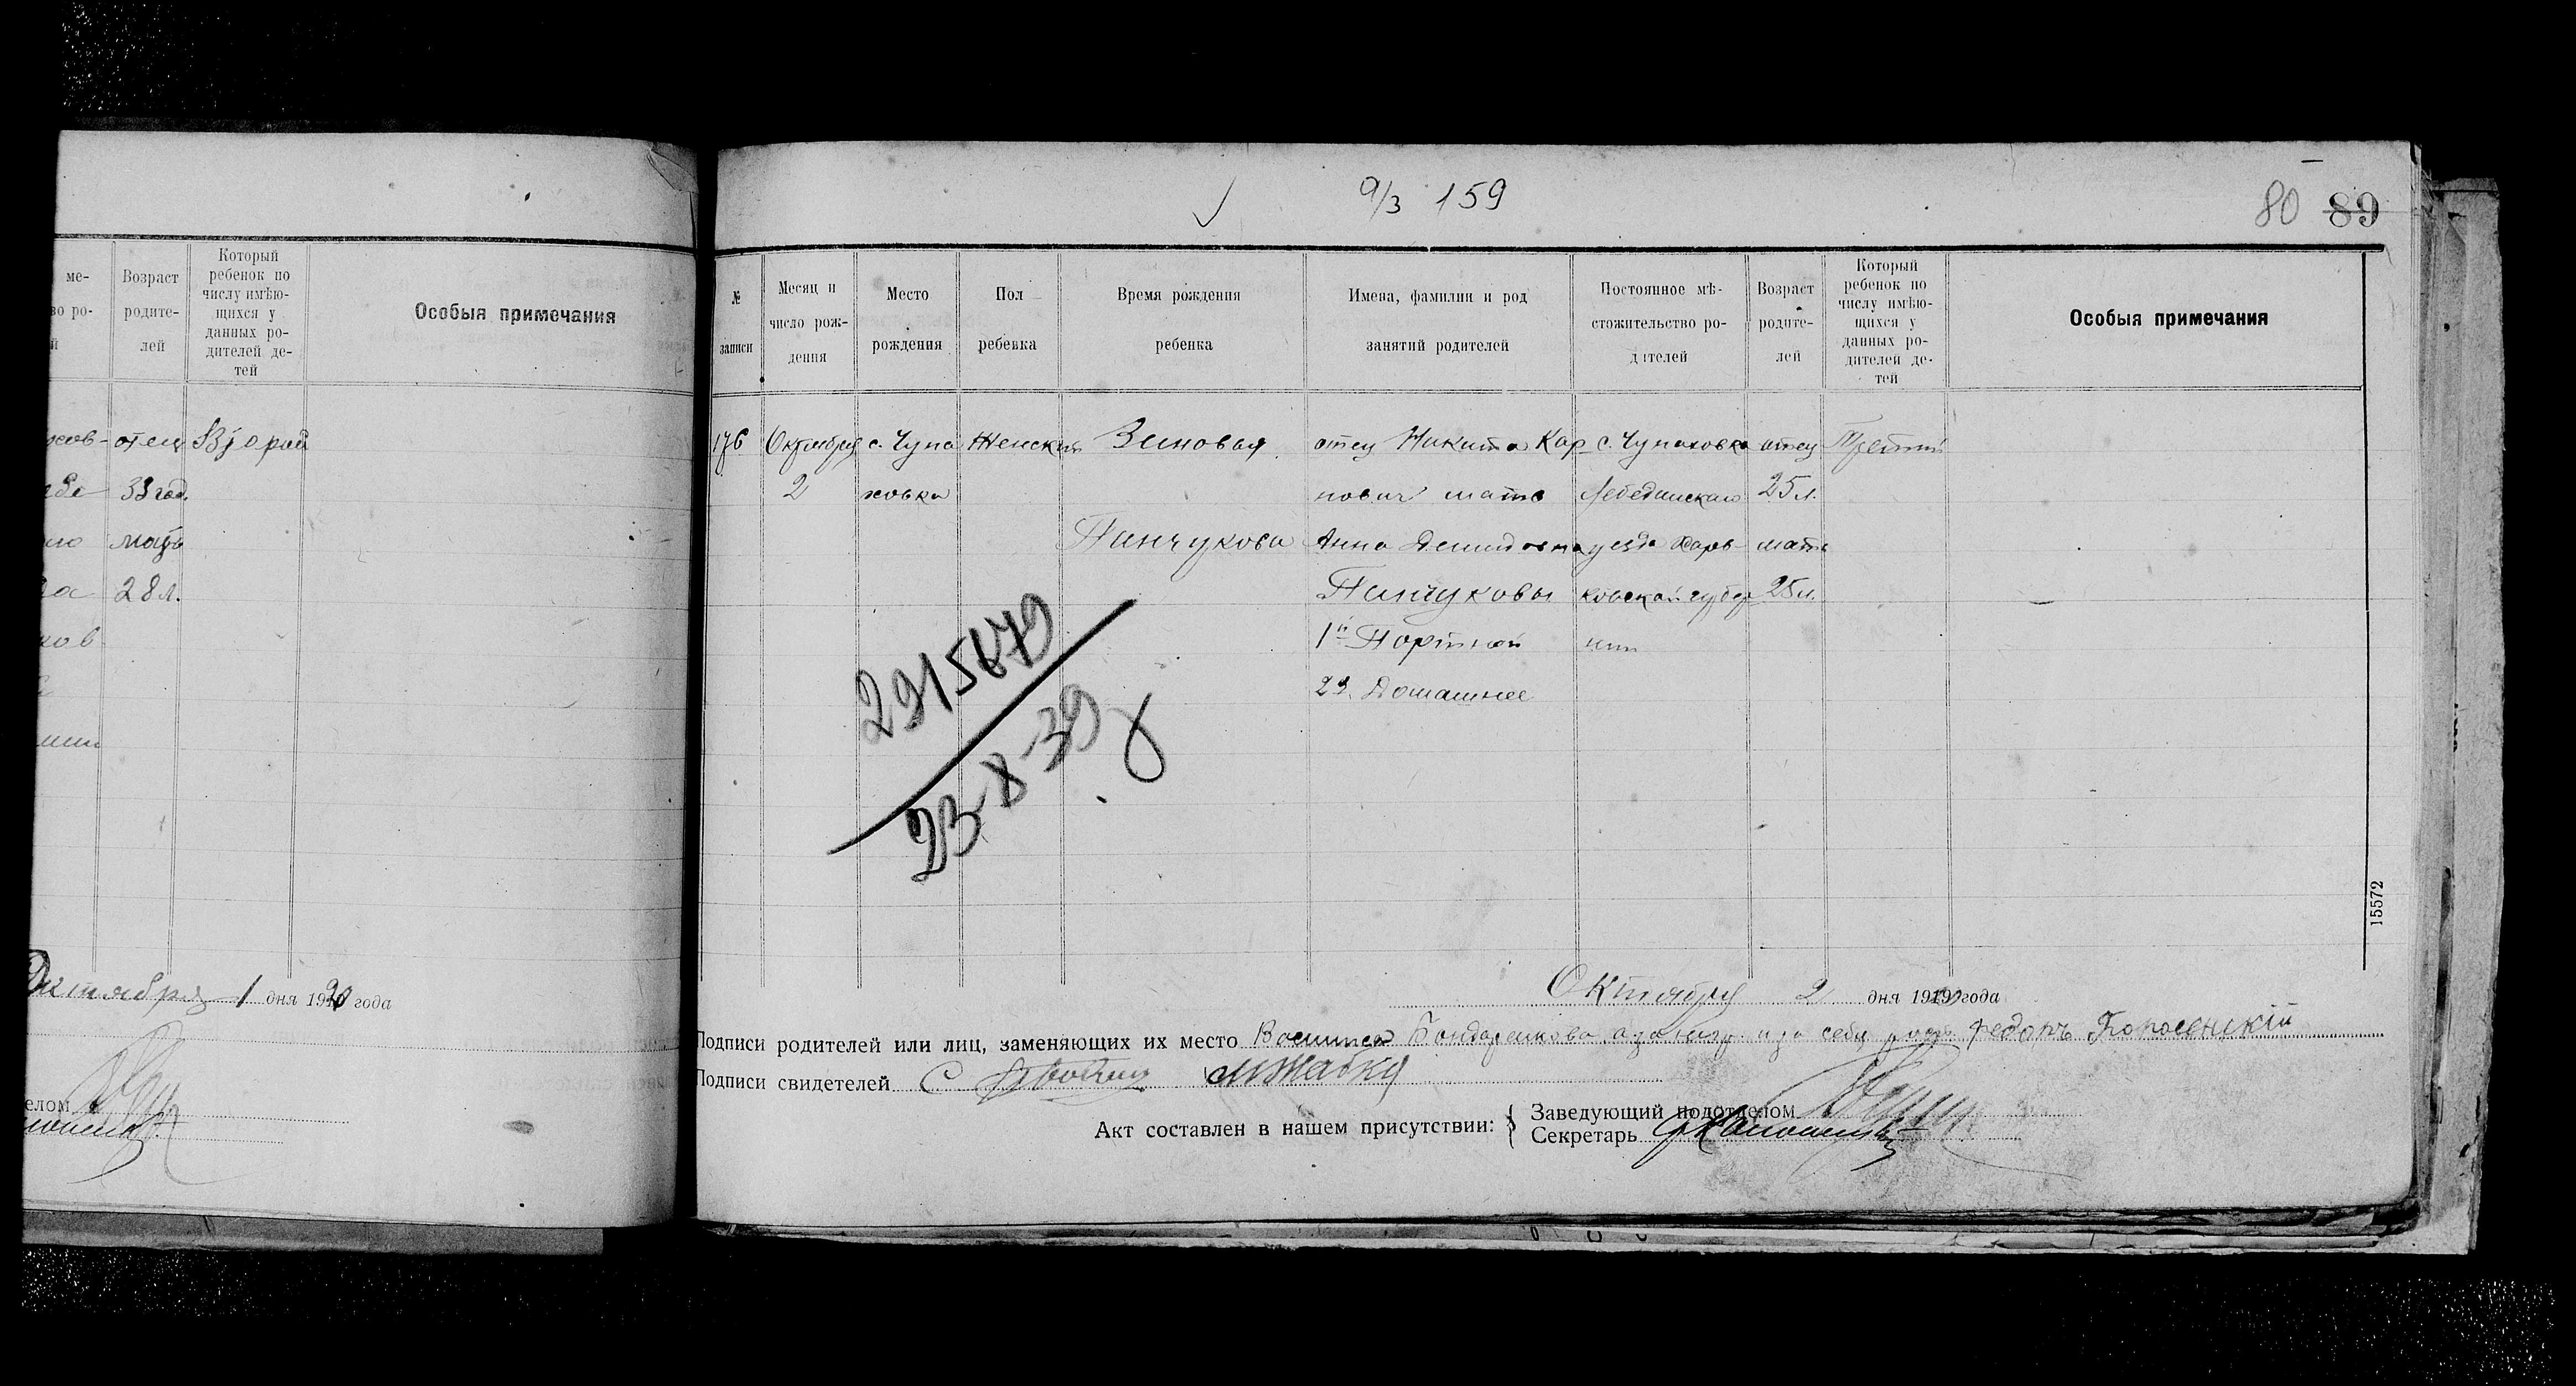 9/3 159
80 89
ме-
во ро-
й
Возраст
родите-
лей
Который
ребенок по
числу имѣю-
щихся у
данных ро-
дителей де-
тей
Особыя примечания
отец Второй
33 год.
мать
28 л.
ков
Октября 1 дня 1920 года
елом
№
записи
Месяц и
число рож-
дения
Место
рождения
Пол
ребенка
Время рождения
ребенка
Имена, фамилии и род
занятий родителей
Постоянное мѣ-
стожительство ро-
дителей
Возраст
родите-
лей
Который
ребенок по
числу имѣю-
щихся у
данных ро-
дителей де-
тей
Особыя примечания
176 Октября с. Чупа Женский Зиновья отец Никита Кар- с. Чупаховка отец Третий
2 ховка нович мать Лебединскаго 25 л.
Пинчукова Анна Демидовна уезда Харь- мать
Пинчуковы ковской губер 25 л.
1й Портной нии
2я. Домашнее
2915679
23-8-39
15572
Октября 2 дня 1919 года
Подписи родителей или лиц, заменяющих их место Бондаренкова а за нею и за себя Федоръ
Подписи свидетелей С
Акт составлен в нашем присутствии:
Заведующий подотделом
Секретарь